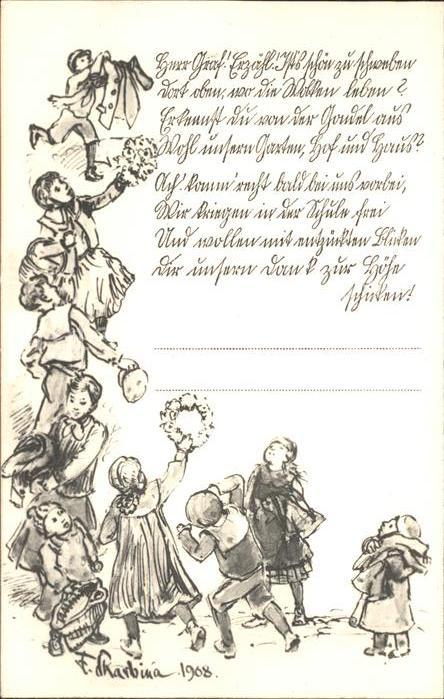 Herr Graf! Erzähl! Ist's schön zu schweben
Dort oben, wo die Wolken leben?
Erkennst Du von der Gondel aus
Wohl unsern Garten, Hof und Haus?
Ach komm' recht bald bei uns vorbei,
Wir kriegen in der Schule frei
Und wollen mit entzückten Blicken
Dir unsern Dank zur Höhe
schicken!
F. Skarbina 1908.